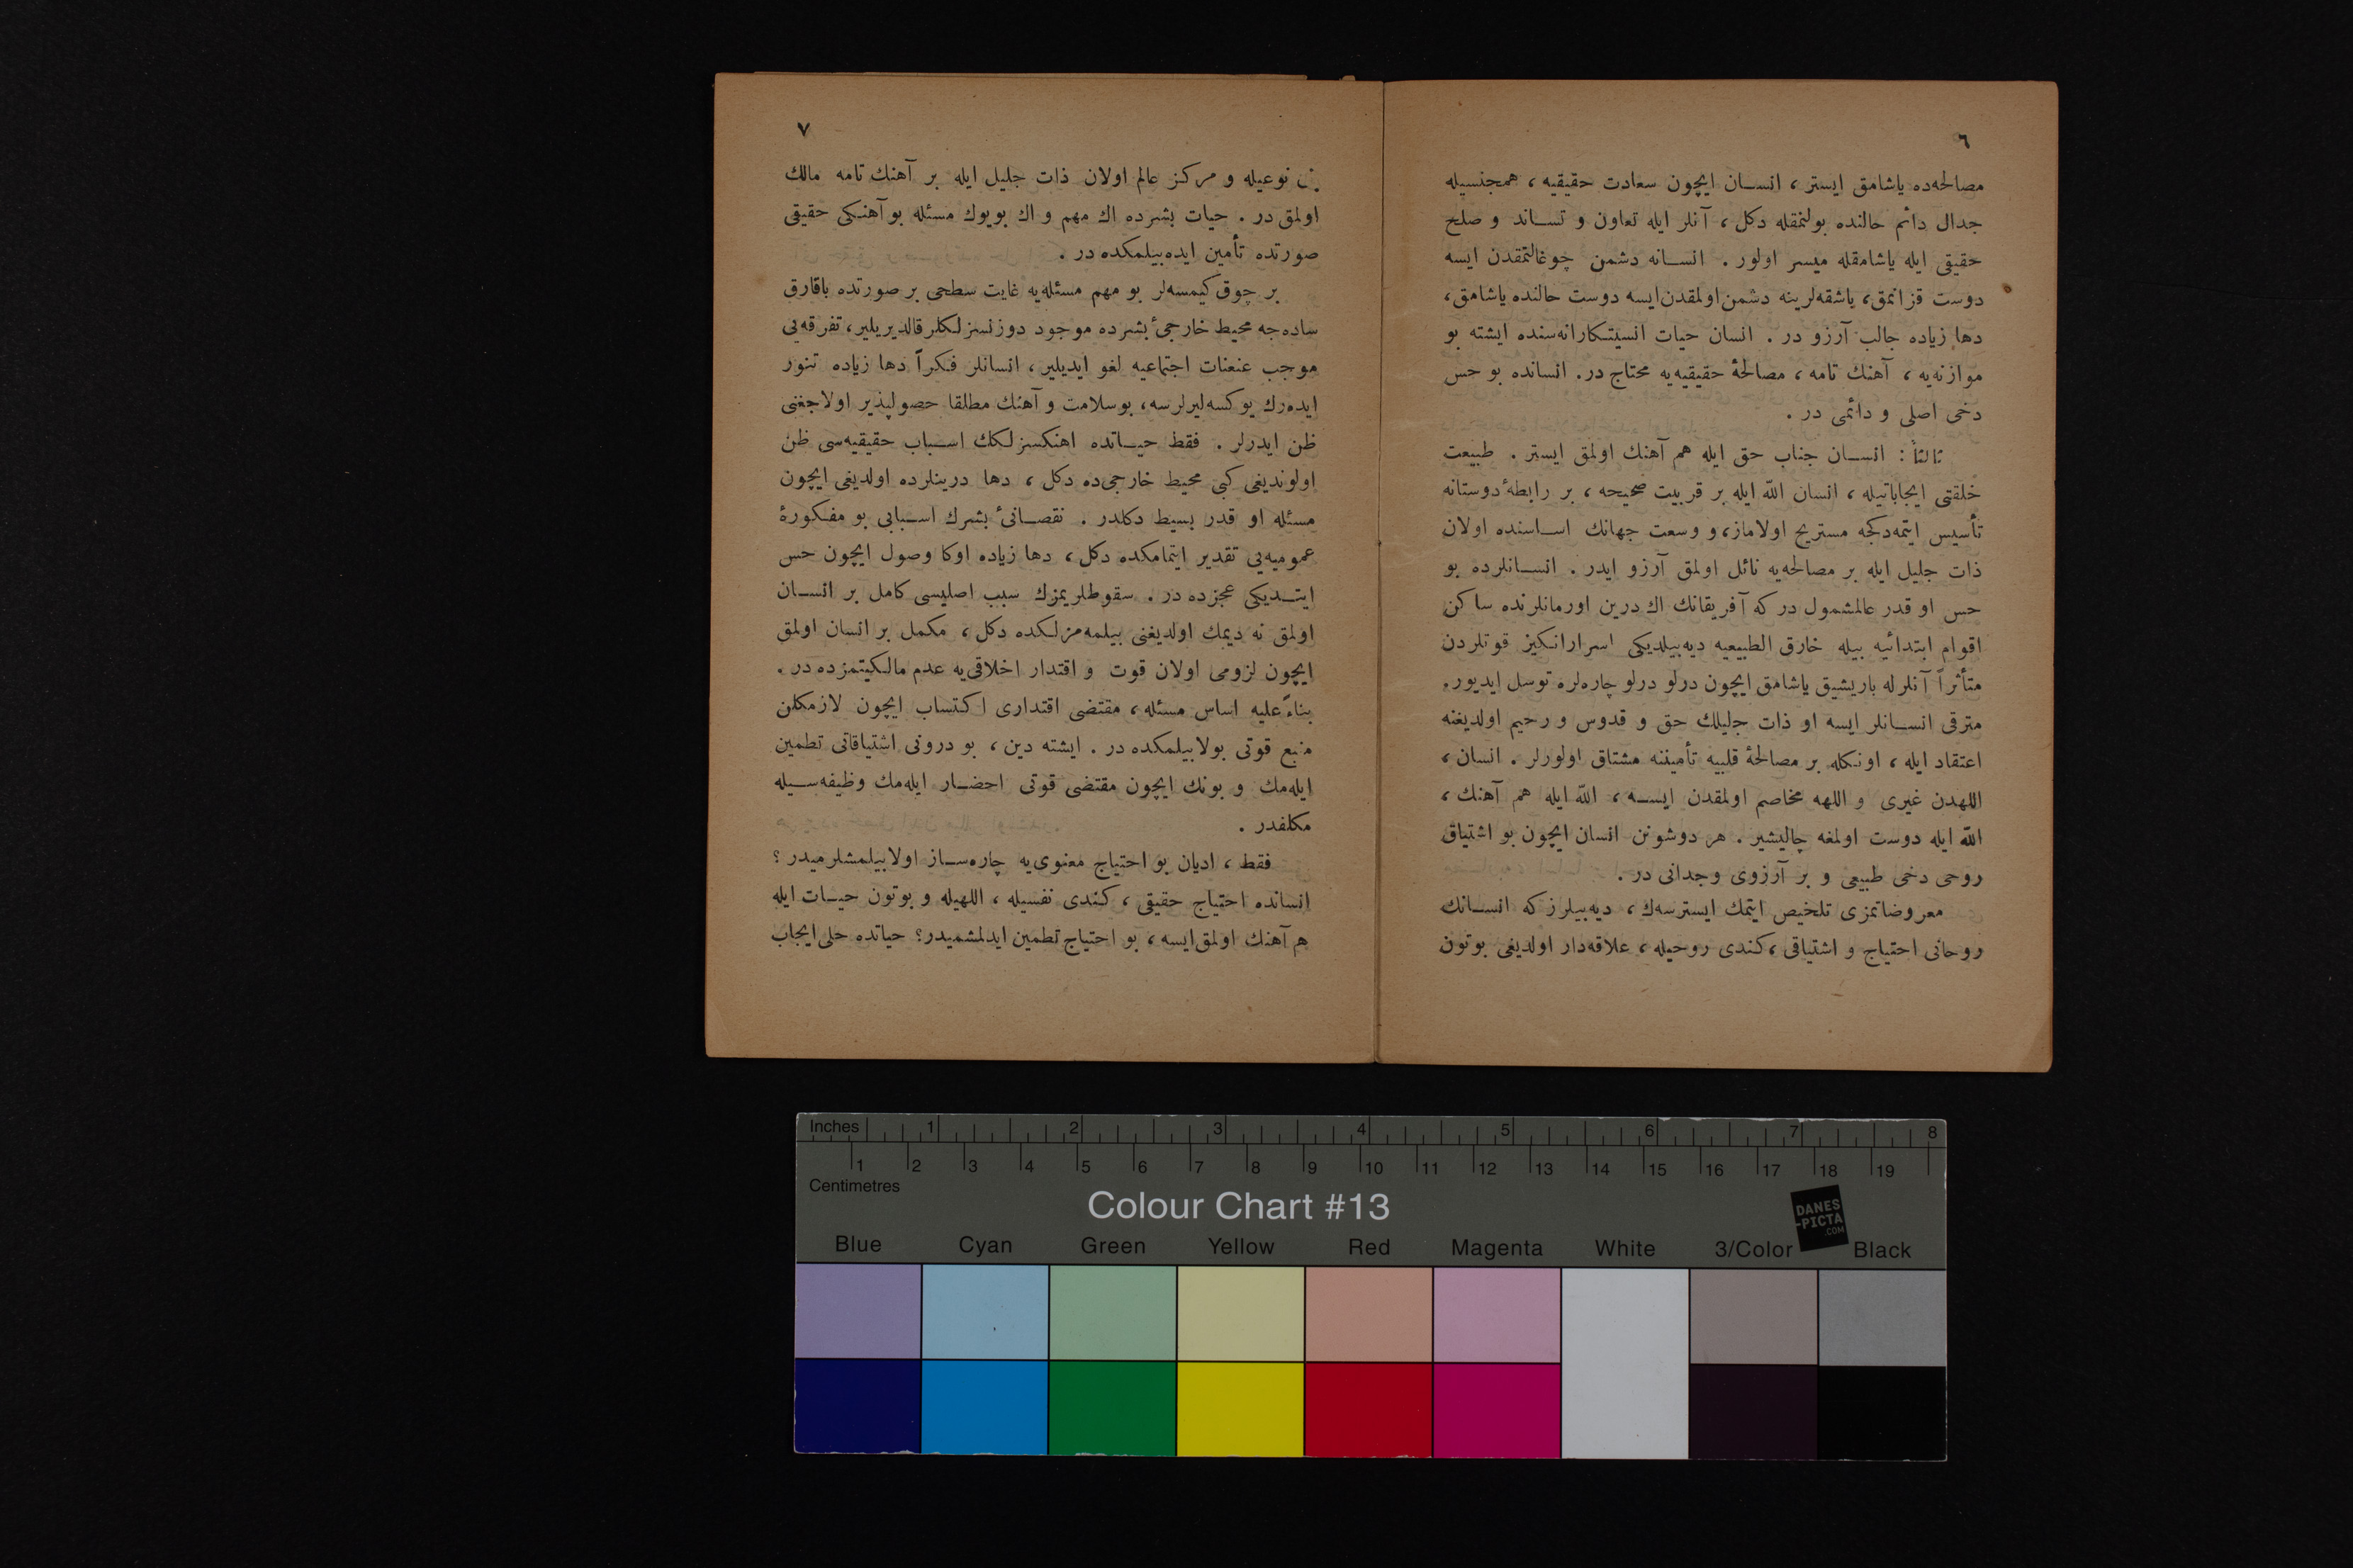 ٦
مصالحه‌ده ياشامق ايستر ، انسان ايچون سعادت حقيقيه ، همجنسيله
جدال دائم حالنده بولنمقله دكل ، آنلر ايله تعاون و تساند و صلح
حقيقى ايله ياشامقله ميسر اولور . انسانه دشمن چوغالتمقدن ايسه
دوست قزانمق، ياشقه‌لرينه دشمن اولمقدن ايسه دوست حالنده ياشامق،
دها زياده جالب آرزو در . انسان حيات انسيتكارانه‌سنده ايشته بو
موازنه‌يه ، آهنك تامه ، مصالحۀ حقيقيه‌يه محتاج در. انسانده بو حس
دخى اصلى و دائمى در .
ثالثاً : انسان جناب حق ايله هم آهنك اولمق ايستر . طبيعت
خلقتى ايجاباتيله ، انسان الله ايله بر قربيت صحيحه ، بر رابطۀ دوستانه
تأسيس ايتمه‌دكجه مستريح اولاماز، و وسعت جهانك اساسنده اولان
ذات جليل ايله بر مصالحه‌يه نائل اولمق آرزو ايدر . انسانلرده بو
حس او قدر عالمشمول در كه آفريقانك اك درين اورمانلرنده ساكن
اقوام ابتدائيه بيله خارق الطبيعيه ديه‌بيلديكى اسرارانكيز قوتلردن
متأثراً آنلرله باريشيق ياشامق ايچون درلو درلو چاره‌لره توسل ايديور.
مترقى انسانلر ايسه او ذات جليلك حق و قدوس و رحيم اولديغنه
اعتقاد ايله ، اونكله بر مصالحۀ قلبيه تأميننه مشتاق اولورلر . انسان ،
اللهدن غيرى و اللهه مخاصم اولمقدن ايسه ، الله ايله هم آهنك ،
الله ايله دوست اولمغه چاليشير . هر دوشونن انسان ايچون بو اشتياق
روحى دخى طبيعى و بر آرزوى وجدانى در .
معروضاتمزى تلخيص ايتمك ايسترسه‌ك ، ديه‌بيلرز كه انسانك
روحانى احتياج و اشتياقى ، كندى روحيله ، علاقه‌دار اولديغى بوتون
٧
نوعيله و مركز عالم اولان ذات جليل ايله بر آهنك تامه مالك
اولمق در . حيات بشرده اك مهم و اك بويوك مسئله بو آهنكى حقيقى
صورتده تأمين ايده‌بيلمكده در .
بر چوق كيمسه‌لر بو مهم مسئله‌يه غايت سطحى بر صورتده باقارق
ساده‌جه محيط خارجىٔ بشرده موجود دوزنسزلكلر قالديريلير، تفرقه‌يى
موجب عنعنات اجتماعيه لغو ايديلير ، انسانلر فكراً دها زياده تنور
ايده‌رك يوكسه‌ليرلرسه ، بو سلامت و آهنك مطلقا حصولپذير اولاجغنى
ظن ايدرلر . فقط حياتده اهنكسزلكك اسباب حقيقيه‌سى ظن
اولونديغى كبى محيط خارجى‌ده دكل ، دها درينلرده اولديغى ايچون
مسئله او قدر بسيط دكلدر . نقصانىٔ بشرك اسبابى بو مفكورۀ
عموميه‌يى تقدير ايتمامكده دكل ، دها زياده اوكا وصول ايچون حس
ايتديكى عجزده در . سقوطلريمزك سبب اصليسى كامل بر انسان
اولمق نه ديمك اولديغنى بيلمه‌مزلكده دكل ، مكمل بر انسان اولمق
ايچون لزومى اولان قوت و اقتدار اخلاقى‌يه عدم مالكيتمزده در .
بناءً عليه اساس مسئله ، مقتضى اقتدارى اكتساب ايچون لازمكلن
منبع قوتى بولابيلمكده در . ايشته دين ، بو درونى اشتياقاتى تطمين
ايله‌مك و بونك ايچون مقتضى قوتى احضار ايله‌مك وظيفه‌سيله
مكلفدر .
فقط ، اديان بو احتياج معنوى‌يه چاره‌ساز اولابيلمشلرميدر ؟
انسانده احتياج حقيقى ، كندى نفسيله ، اللهيله و بوتون حيات ايله
هم آهنك اولمق ايسه ، بو احتياج تطمين ايدلمشميدر؟ حياتده حلى ايجاب
Inches 1 2 3 4 5 6 7 8
1 2 3 4 5 6 7 8 9 10 11 12 13 14 15 16 17 18 19
Centimetres
Colour Chart #13
DANES
-PICTA
.COM
Blue Cyan Green Yellow Red Magenta White 3/Color Black